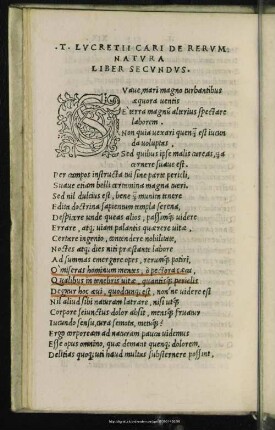 .T. LVCRETII CARI DE RERVM
NATVRA
LIBER SECVNDVS.
SVaue, mari magno turbantibus
æquora uentis
E terra magnũ alterius spectare
laborem.
Non quia uexari quenq; est iucun
da uoluptas,
Sed quibus ipse malis careas, q̃a
cernere suaue est.
Per campos instructa tui sine parte pericli,
Suaue etiam belli certamina magna tueri.
Sed nil dulcius est, bene q̃ munita tenere
Edita doctrina sapientum templa serena,
Despicere unde queas alios, passimq; uidere
Errare, atq; uiam palantis quærere uitæ,
Certare ingenio, contendere nobilitate,
Noctes atq; dies niti præstante labore
Ad summas emergere opes, rerumq; potiri,
O' miseras hominum mentes, ò pectora cæca,
Qualibus in tenebris uitæ, quantisq; periclis
Degitur hoc æui, quodcunq; est, non'ne uidere est
Nil aliud sibi naturam latrare, nisi utq̃
Corpore seiunctus dolor absit, mensq; fruatur
Iucundo sensu, cura semota, metuq;?
Ergo corpoream ad naturam pauca uidemus
Esse opus omnino, quæ demant quenq; dolorem,
Delitias quoq; uti haud multas substernere possint.